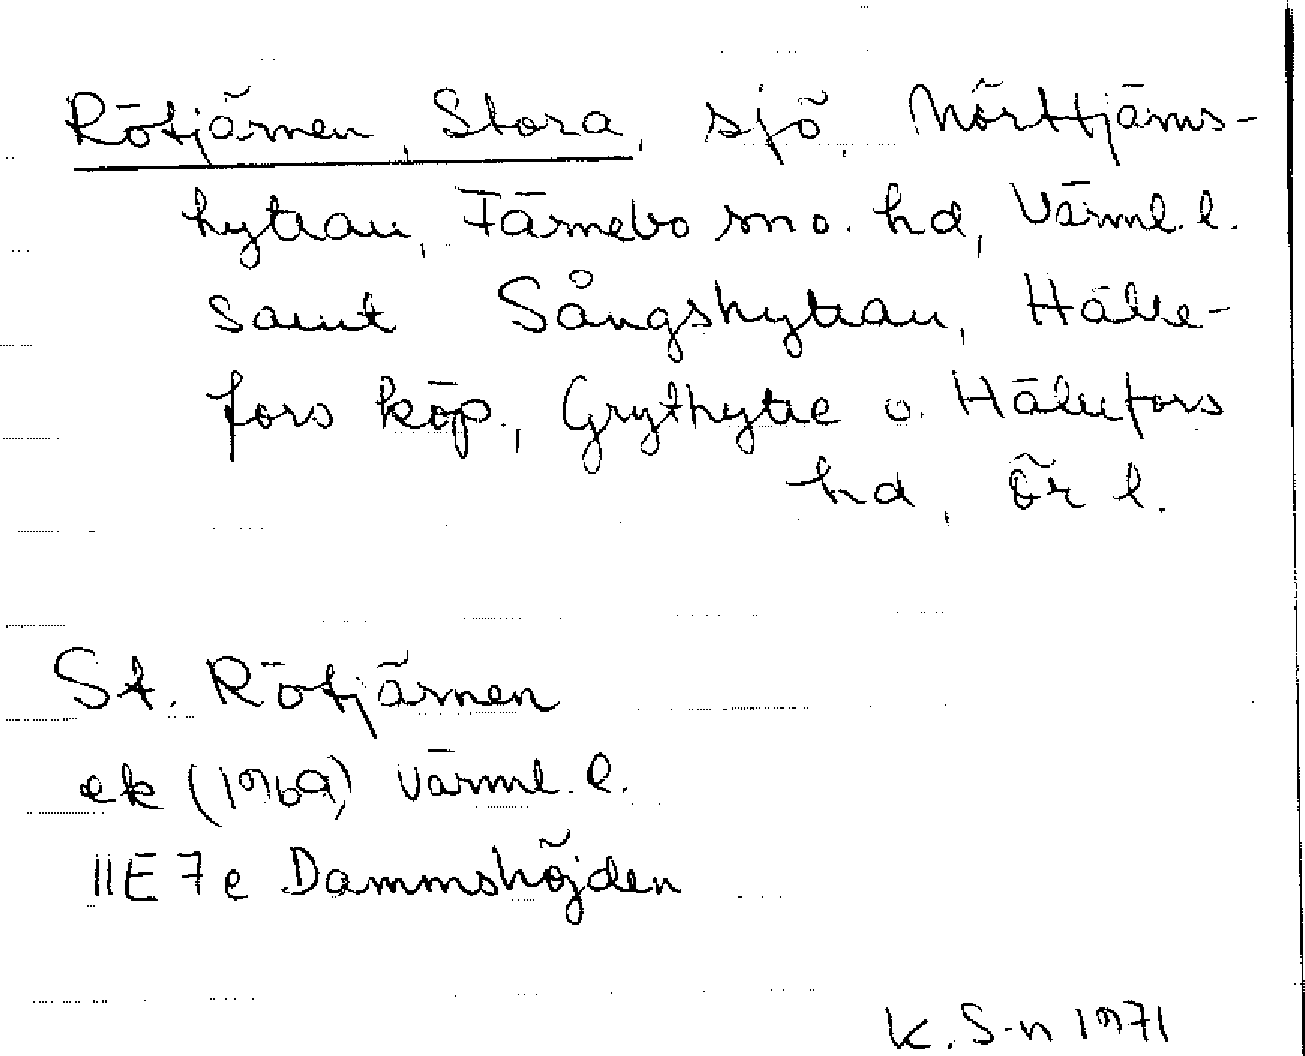 Rötjärnen, Stora, sjö, Mörttjärns-
hyttan, Färnebo sn o. hd, Värml. l.
samt Sångshyttan, Hälle-
fors köp., Grythytte o. Hällefors
hd, Ör l.
St. Rötjärnen
ek (1969) Värml. l.
11E 7e Dammshöjden
K. S-n 1971